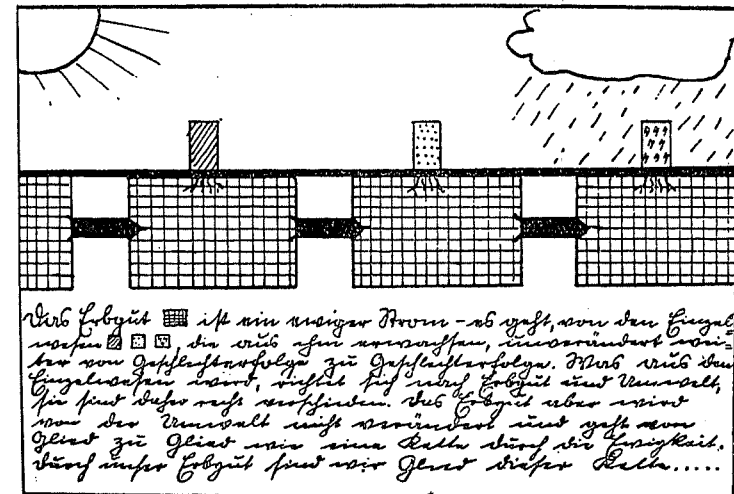 Das Erbgut ist ein ewiger Strom - es geht, von den Einzel-
wesen, die aus ihm erwachsen, unverändert wei-
ter von Geschlechterfolge zu Geschlechterfolge. Was aus den
Einzelwesen wird, richtet sich nach Erbgut und Umwelt,
sie sind daher recht verschieden. Das Erbgut aber wird
von der Umwelt nicht verändert und geht von
Glied zu Glied wie eine Kette durch die Ewigkeit.
Durch unser Erbgut sind wir Glied dieser Kette.....